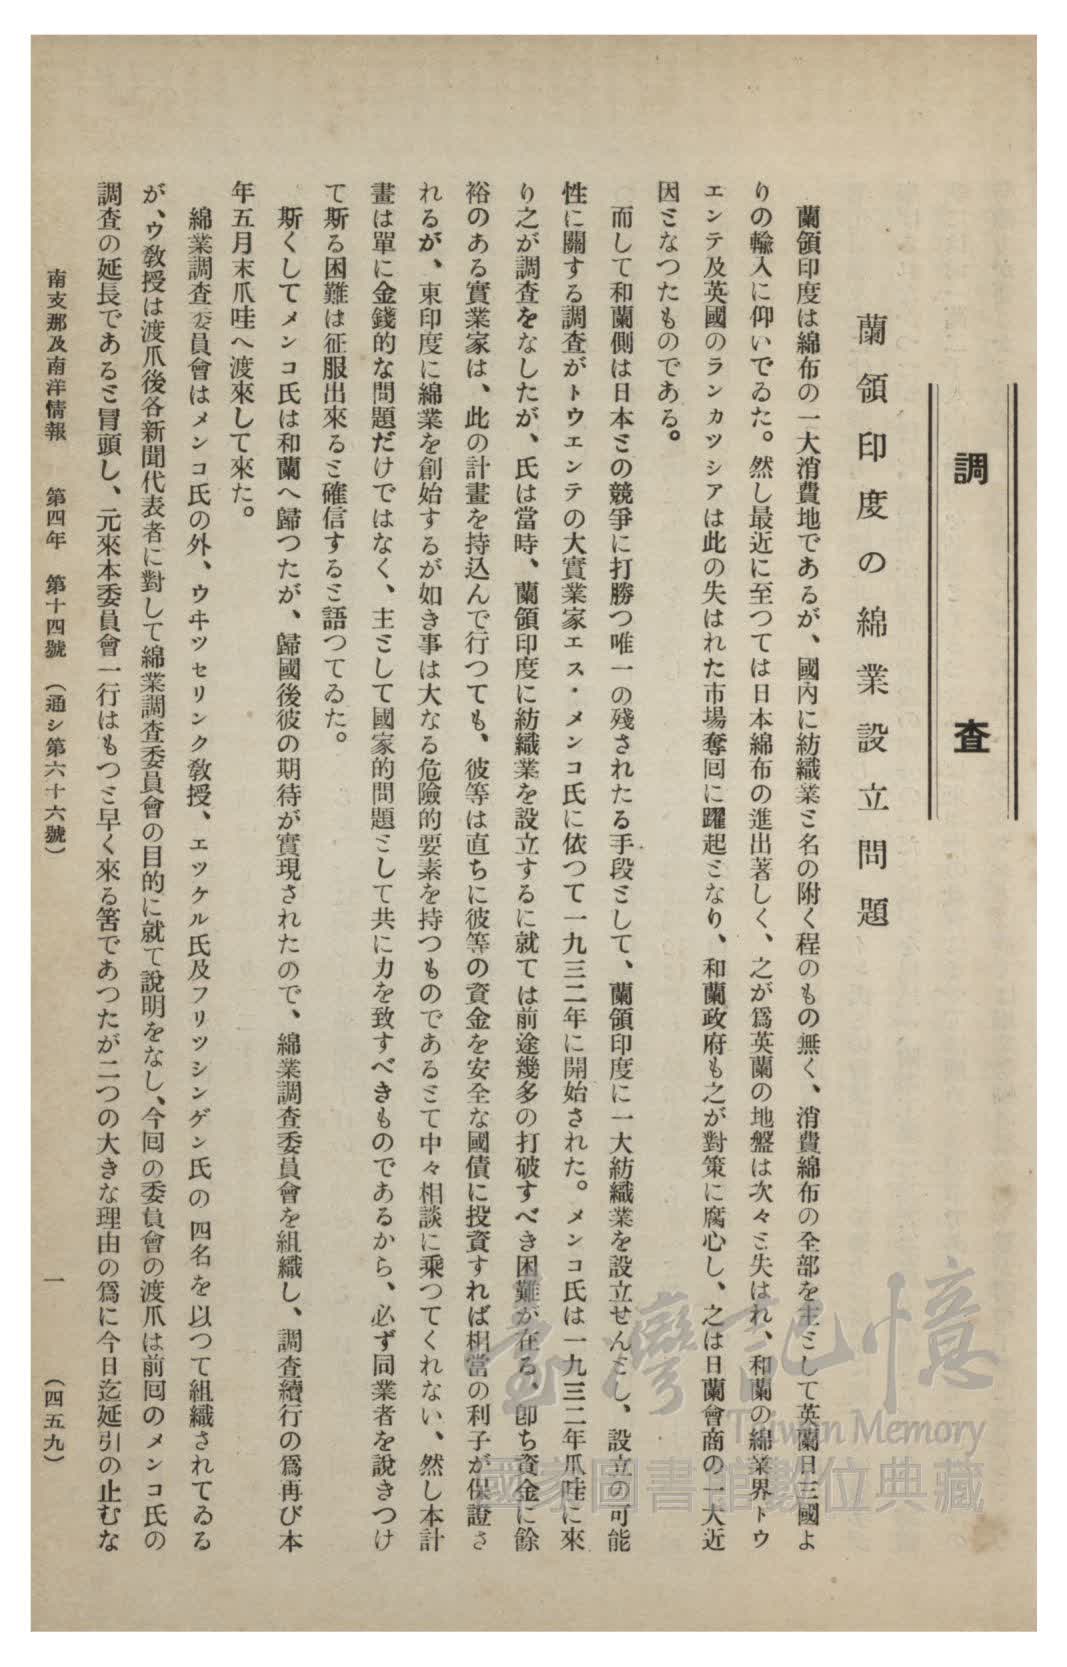 調査
蘭領印度の綿業設立問題
蘭領印度は綿布の一大消費地であるが、國內に紡織業ミ名の附く程のもの無く、消費綿布の全部を主ミして英蘭日三國よ
りの輸入に仰いでゐた。然し最近に至つては日本綿布の進出著しく、之が爲英蘭の地盤は次々ミ失はれ、和蘭の綿業界トウ
エンテ及英國のランカツシアは此の失はれた市場奪囘に躍起ミなり、和蘭政府も之が對策に腐心し、之は日蘭會商の一大近
因ミなつたものである。
而して和蘭側は日本ミの競爭に打勝つ唯一の残されたる手段ミして、蘭領印度に一大紡織業を設立せんミし、設立の可能
性に關する調査がトウエンテの大實業家エス・メンコ氏に依つて一九三二年に開始された。メンコ氏は一九三二年爪哇に來
り之が調査をなしたが、氏は當時、蘭領印度に紡織業を設立するに就ては前途幾多の打破すべき困難が在る、卽ち資金に餘
裕のある實業家は、此の計畫を持込んで行つても、彼等は直ちに彼等の資金を安全な國債に投資すれば相當の利子が保證さ
れるが、東印度に綿業を創始するが如き事は大なる危險的要素を持つものであるミて中々相談に乘つてくれない、然し本計
畫は單に金錢的な問題だけではなく、主ミして國家的問題ミして共に力を致すべきものであるから、必ず同業者を說きつけ
て斯る困難は征服出來るミ確信するミ語つてゐた。
斯くしてメンコ氏は和蘭へ歸つたが、歸國後彼の期待が實現されたので、綿業調査委員會を組織し、調査續行の爲再び本
年五月末爪哇へ渡來して來た。
綿業調査委員會はメンコ氏の外、ウヰツセリンク敎授、エツケル氏及フリツシンゲン氏の四名を以つて組織されてゐる
が、ウ敎授は渡爪後各新聞代表者に對して綿業調査委員會の目的に就て說明をなし、今囘の委員會の渡爪は前囘のメンコ氏の
調査の延長であるミ冒頭し、元來本委員會一行はもつミ早く來る筈であつたが二つの大きな理由の爲に今日迄延引の止むな
南支那及南洋情報　第四年　第十四號　（通シ第六十六號）　一　（四五九）
臺灣記憶
Taiwan Memory
國家圖書館數位典藏